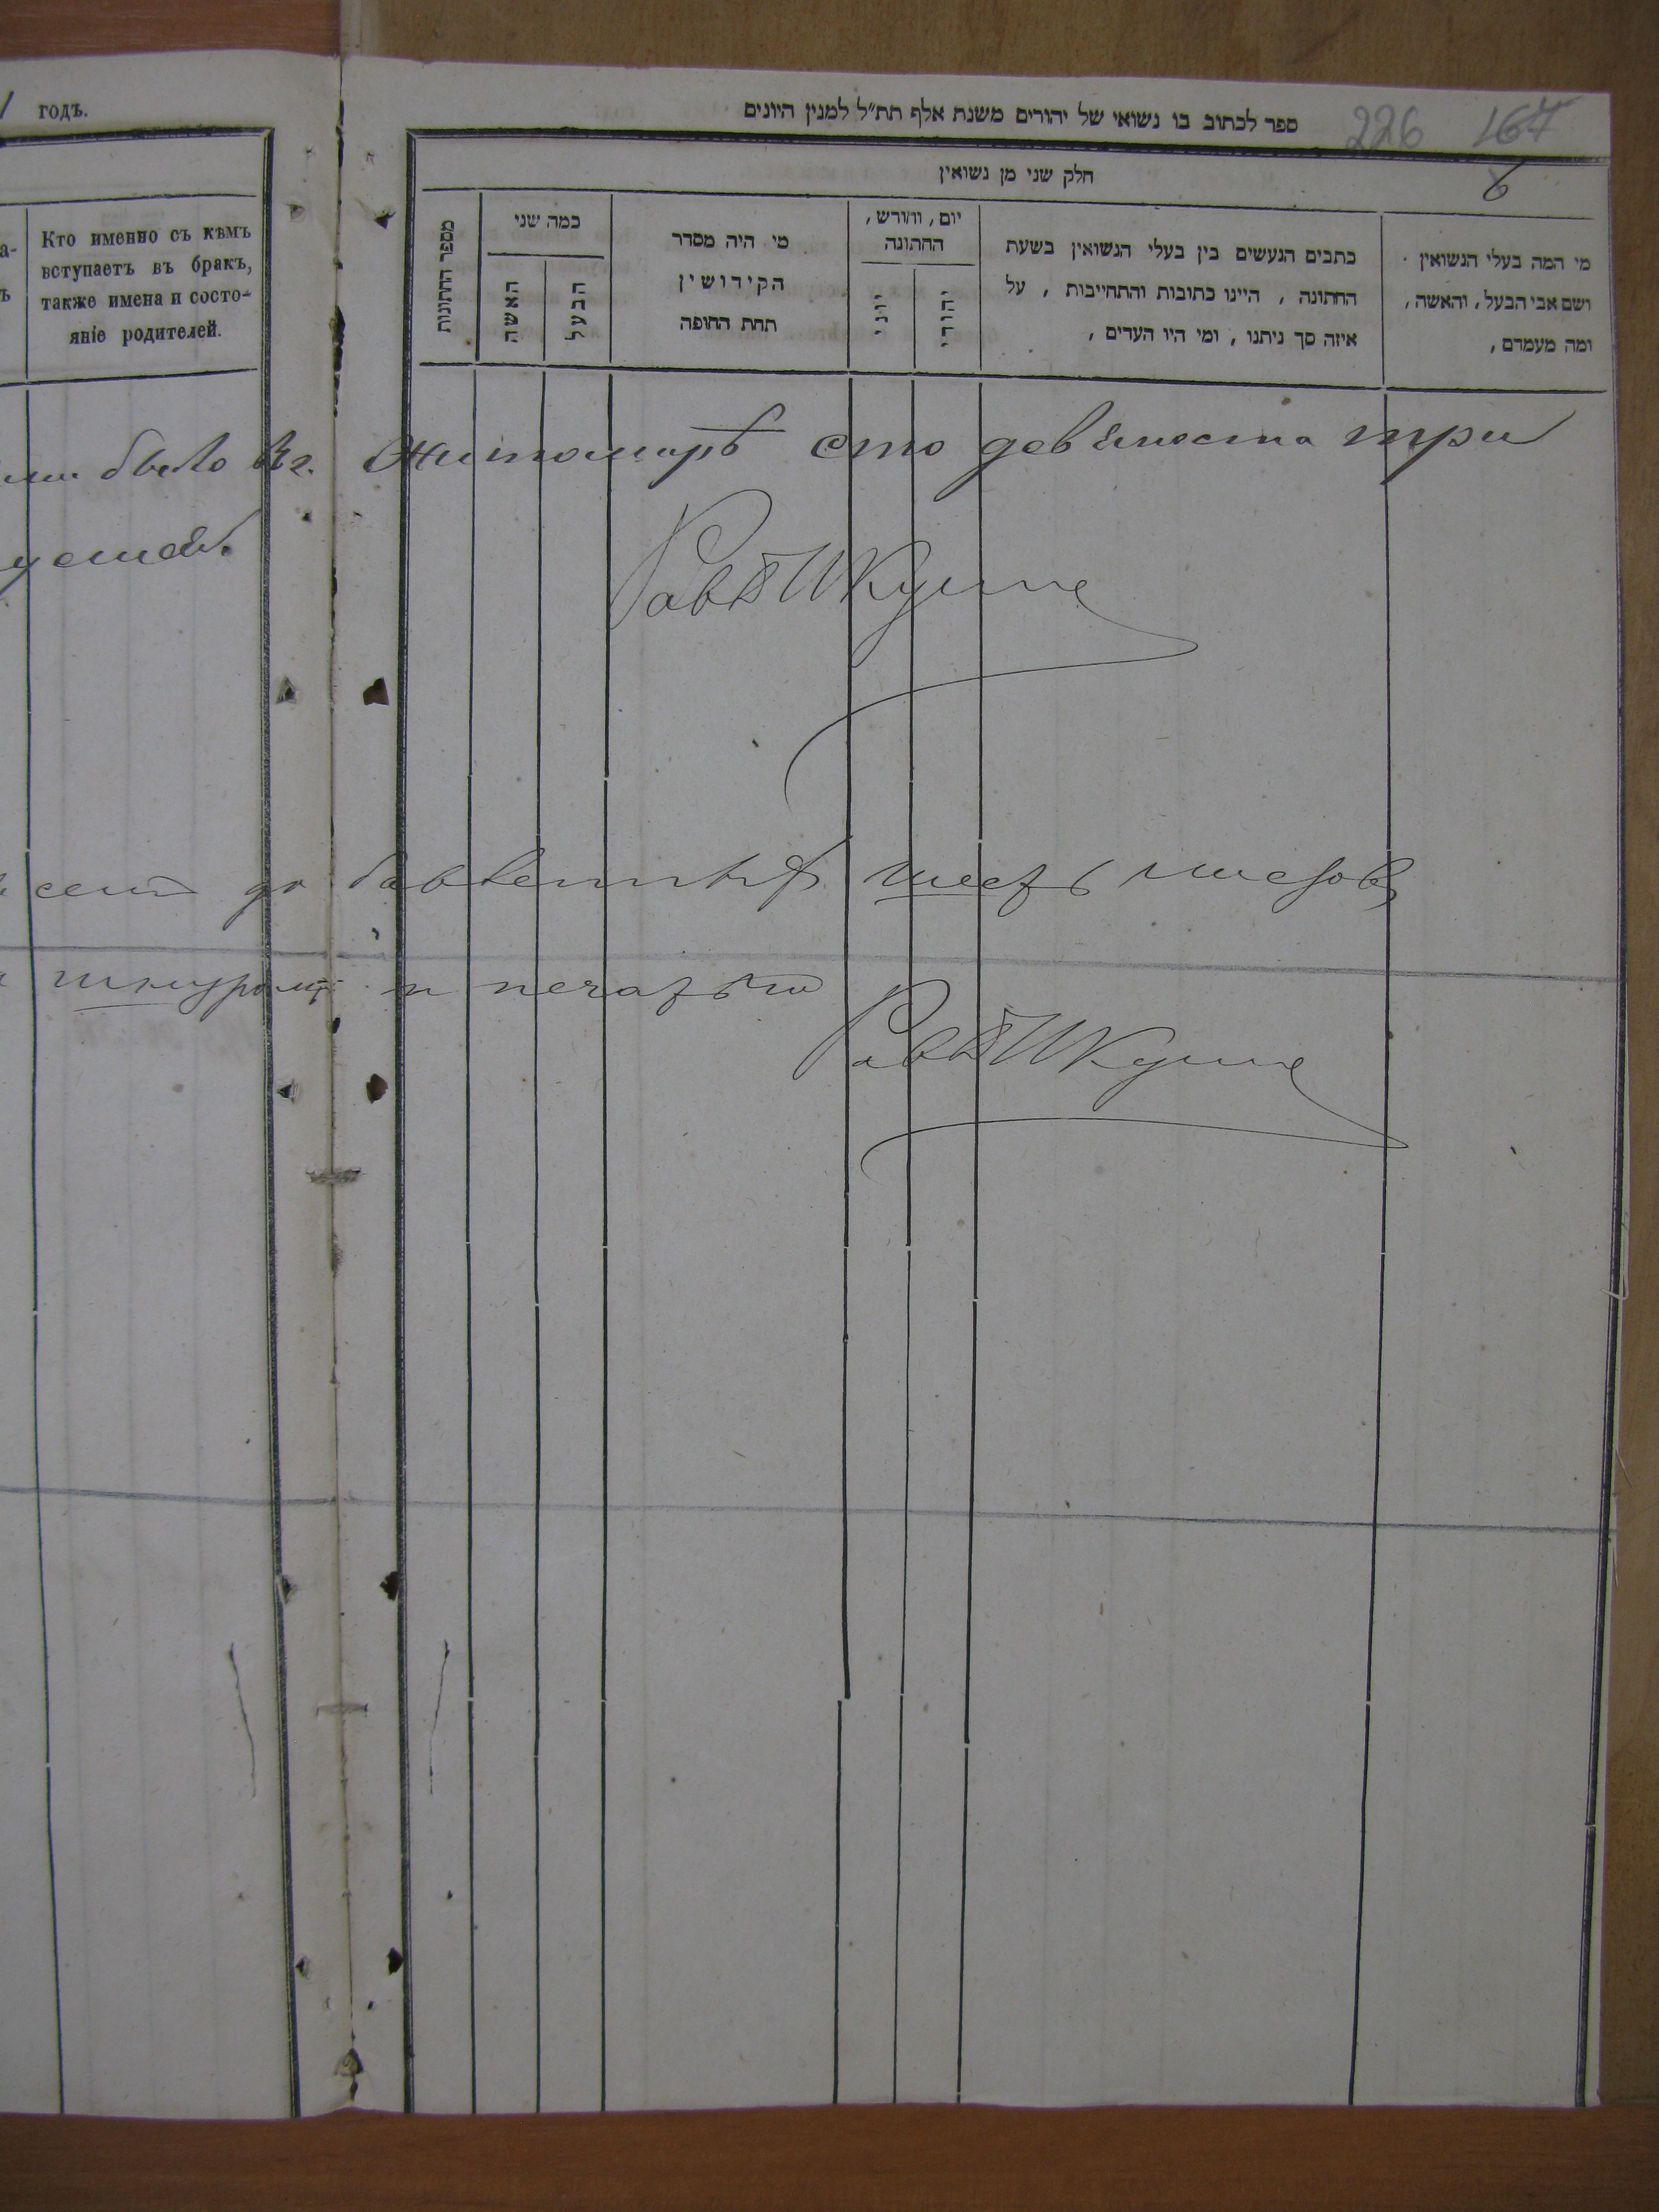 годъ.
Кто именно съ кѣмъ
вступаетъ въ бракъ,
также имена и состо-
яніе родителей.
ספר לכתוב בו נשואי של יהודים משנת אלף תת״ל למנין היונים
226 167
6
חלק שני מן נשואין
מספר החתונות
כמה שני
האשה
הבעל
מי היה מסדר
הקידושין
תחת החופה
יום, וחודש,
החתונה
יוני
יהודי
כתבים הנעשים בין בעלי הנשואין בשעת
החתונה, היינו כתובות והתחייבות, על
איזה סך ניתנו, ומי היו העדים,
מי המה בעלי הנשואין
ושם אבי הבעל, והאשה,
ומה מעמדם,
было въ г. Житомирѣ сто девяноста три
Раввинъ Кулише
сей до бавленны шесть листовъ
шнуромъ и печатью
Раввинъ Кулише